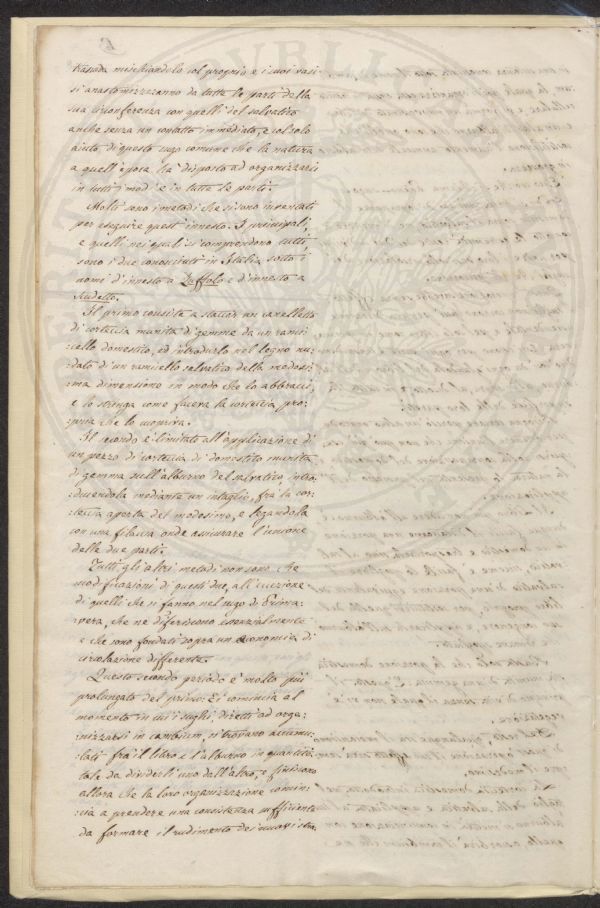 trasuda mischiandola col proprio e i suoi vasi
si anastomizzeranno da tutte le parti della
sua circonferenza con quelli del salvatico
anche senza un contatto immediato, e col solo
aiuto di questo sugo comune che la natura
a quell'epoca ha disposto ad organizzarsi
in tutti i modi e in tutte le parti.
Molti sono i metodi che si sono inventati
per eseguire quest'innesto. I principali,
e quelli nei quali si comprendono tutti
sono i due conosciuti in Italia sotto i
nomi d'innesto a Zuffolo e d'innesto a
Scudetto.
Il primo consiste a staccar un anelletto
di corteccia munita di gemme da un ramis:
:cello domestico, ed introdurlo nel legno nu:
:dato di un ramicello salvatico della medesi:
:ma dimensione in modo che lo abbracci,
e lo stringa come faceva la corteccia pro:
:pria che lo copriva.
Il secondo è limitato all'applicazione di
un pezzo di corteccia di domestico munita
di gemma sull'alburno del salvatico intro:
:ducendola mediante un intaglio, frà la cor:
:teccia aperta del medesimo, e legandola
con una filaccia onde assicurare l'unione
delle due parti.
Tutti gli altri metodi non sono che
modificazioni di questi due, all'eccezione
di quelli che si fanno nel sugo di Prima:
:vera, che ne diferiscono essenzialmente
e che sono fondati sopra un economia di
circolazione differente.
Questo secondo periodo è molto più
prolungato del primo: Ei comincia al
momento in cui i sughi, diretti ad orga:
:nizzarsi in cambium, si trovano accumu:
:lati frà il libro e l'alburno in quantità
tale da dividerli uno dall'altro, e finiscono
allora che la loro organizzazione comin:
:cia a prendere una consistenza sufficiente
da formare il rudimento dei nuovi stra: